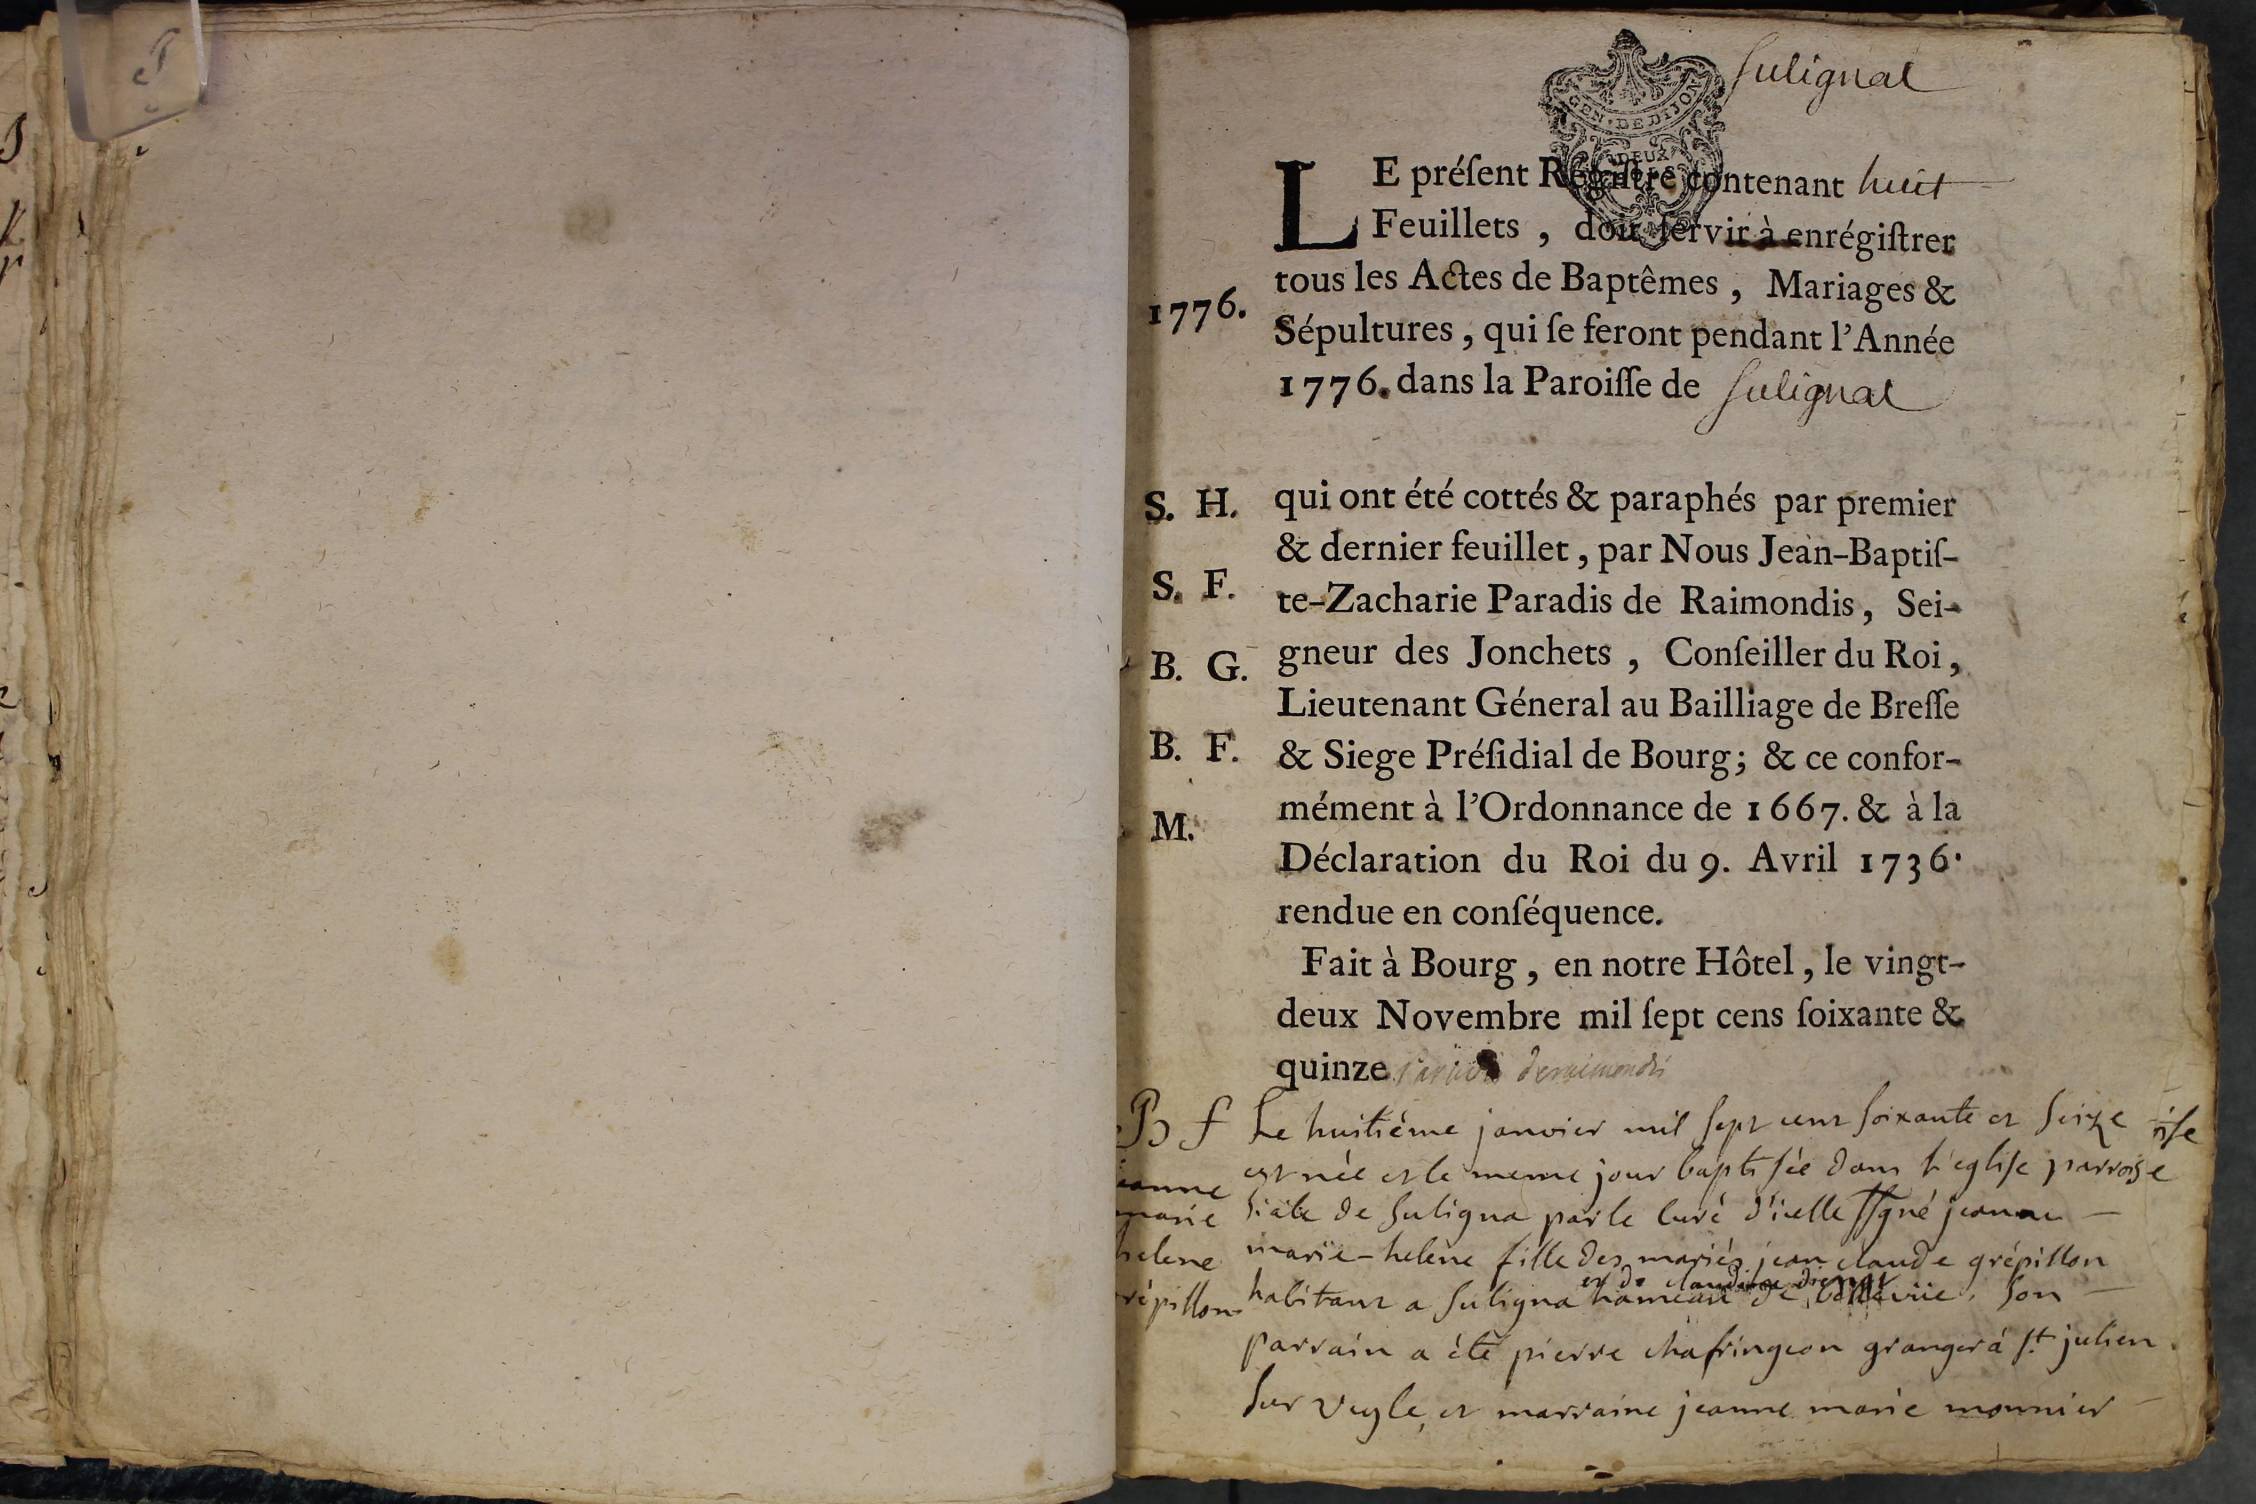 Sulignat
GEN · DE DIJON
DEUX
LE préſent Regiſtre contenant huit
Feuillets , doit ſervir à enrégiſtrer
tous les Actes de Baptêmes , Mariages &
1776.
Sépultures , qui ſe feront pendant l'Année
1776. dans la Paroiſſe de Sulignat
S. H.
qui ont été cottés & paraphés par premier
& dernier feuillet , par Nous Jean-Baptiſ-
S. F.
te-Zacharie Paradis de Raimondis , Sei-
B. G.
gneur des Jonchets , Conſeiller du Roi ,
Lieutenant Géneral au Bailliage de Breſſe
B. F.
& Siege Préſidial de Bourg; & ce confor-
mément à l'Ordonnance de 1667. & à la
M.
Déclaration du Roi du 9. Avril 1736.
rendue en conſéquence.
Fait à Bourg , en notre Hôtel , le vingt-
deux Novembre mil ſept cens ſoixante &
quinze Paradis deraimondis
B f
Le huitiéme janvier mil sept cent soixante et seize
est née et le meme jour baptisée dans l'eglise parrois
jeanne
marie
siale de Suligna par le curé d'icelle ssgné jeanne
helene
marie-helene fille des mariés jean claude grépillon
et de claudine
grépillon
habitant a Suligna hameau de bellevüe. Son
parrain a été pierre chafringeon granger á st julien
Sur veyle, et marraine jeanne marie monnier